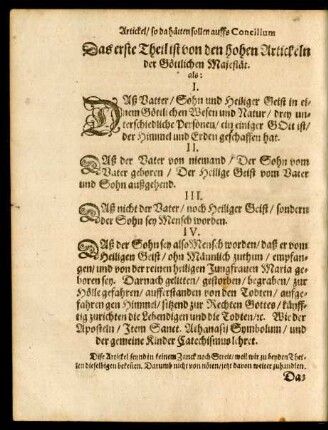 Artickel / so da hätten sollen auffs Concilium
Das erste Theil ist von den hohen Artickeln
der Göttlichen Majestät.
als:
I.
DAß Vatter / Sohn und Heiliger Geist in ei-
nem Göttlichen Wesen und Natur / drey un-
terschiedliche Persönen / ein einiger GOtt ist /
der Himmel und Erden geschaffen hat.
II.
DAß der Vater von niemand / Der Sohn vom
Vater geboren / Der Heilige Geist vom Vater
und Sohn außgehend.
III.
DAß nicht der Vater / noch Heiliger Geist / sondern
der Sohn sey Mensch worden.
IV.
DAß der Sohn sey also Mensch worden / daß er vom
Heiligen Geist / ohn Männlich zuthun / empfan-
gen / und von der reinen heiligen Jungfrauen Maria ge-
boren sey. Darnach gelitten / gestorben / begraben / zur
Hölle gefahren / aufferstanden von den Todten / auffge-
fahren gen Himmel / sitzend zur Rechten Gottes / künff-
tig zurichten die Lebendigen und die Todten / ꝛc. Wie der
Aposteln / Item Sanct. Athanasii Symbolum / und
der gemeine Kinder Catechismus lehret.
Dise Artickel sennd in keinem Zanck noch Streit / weil wir zu beyden Thei-
len dieselbigen bekennen. Darumb nicht von nöten / jetzt davon weiter zuhandlen.
Das